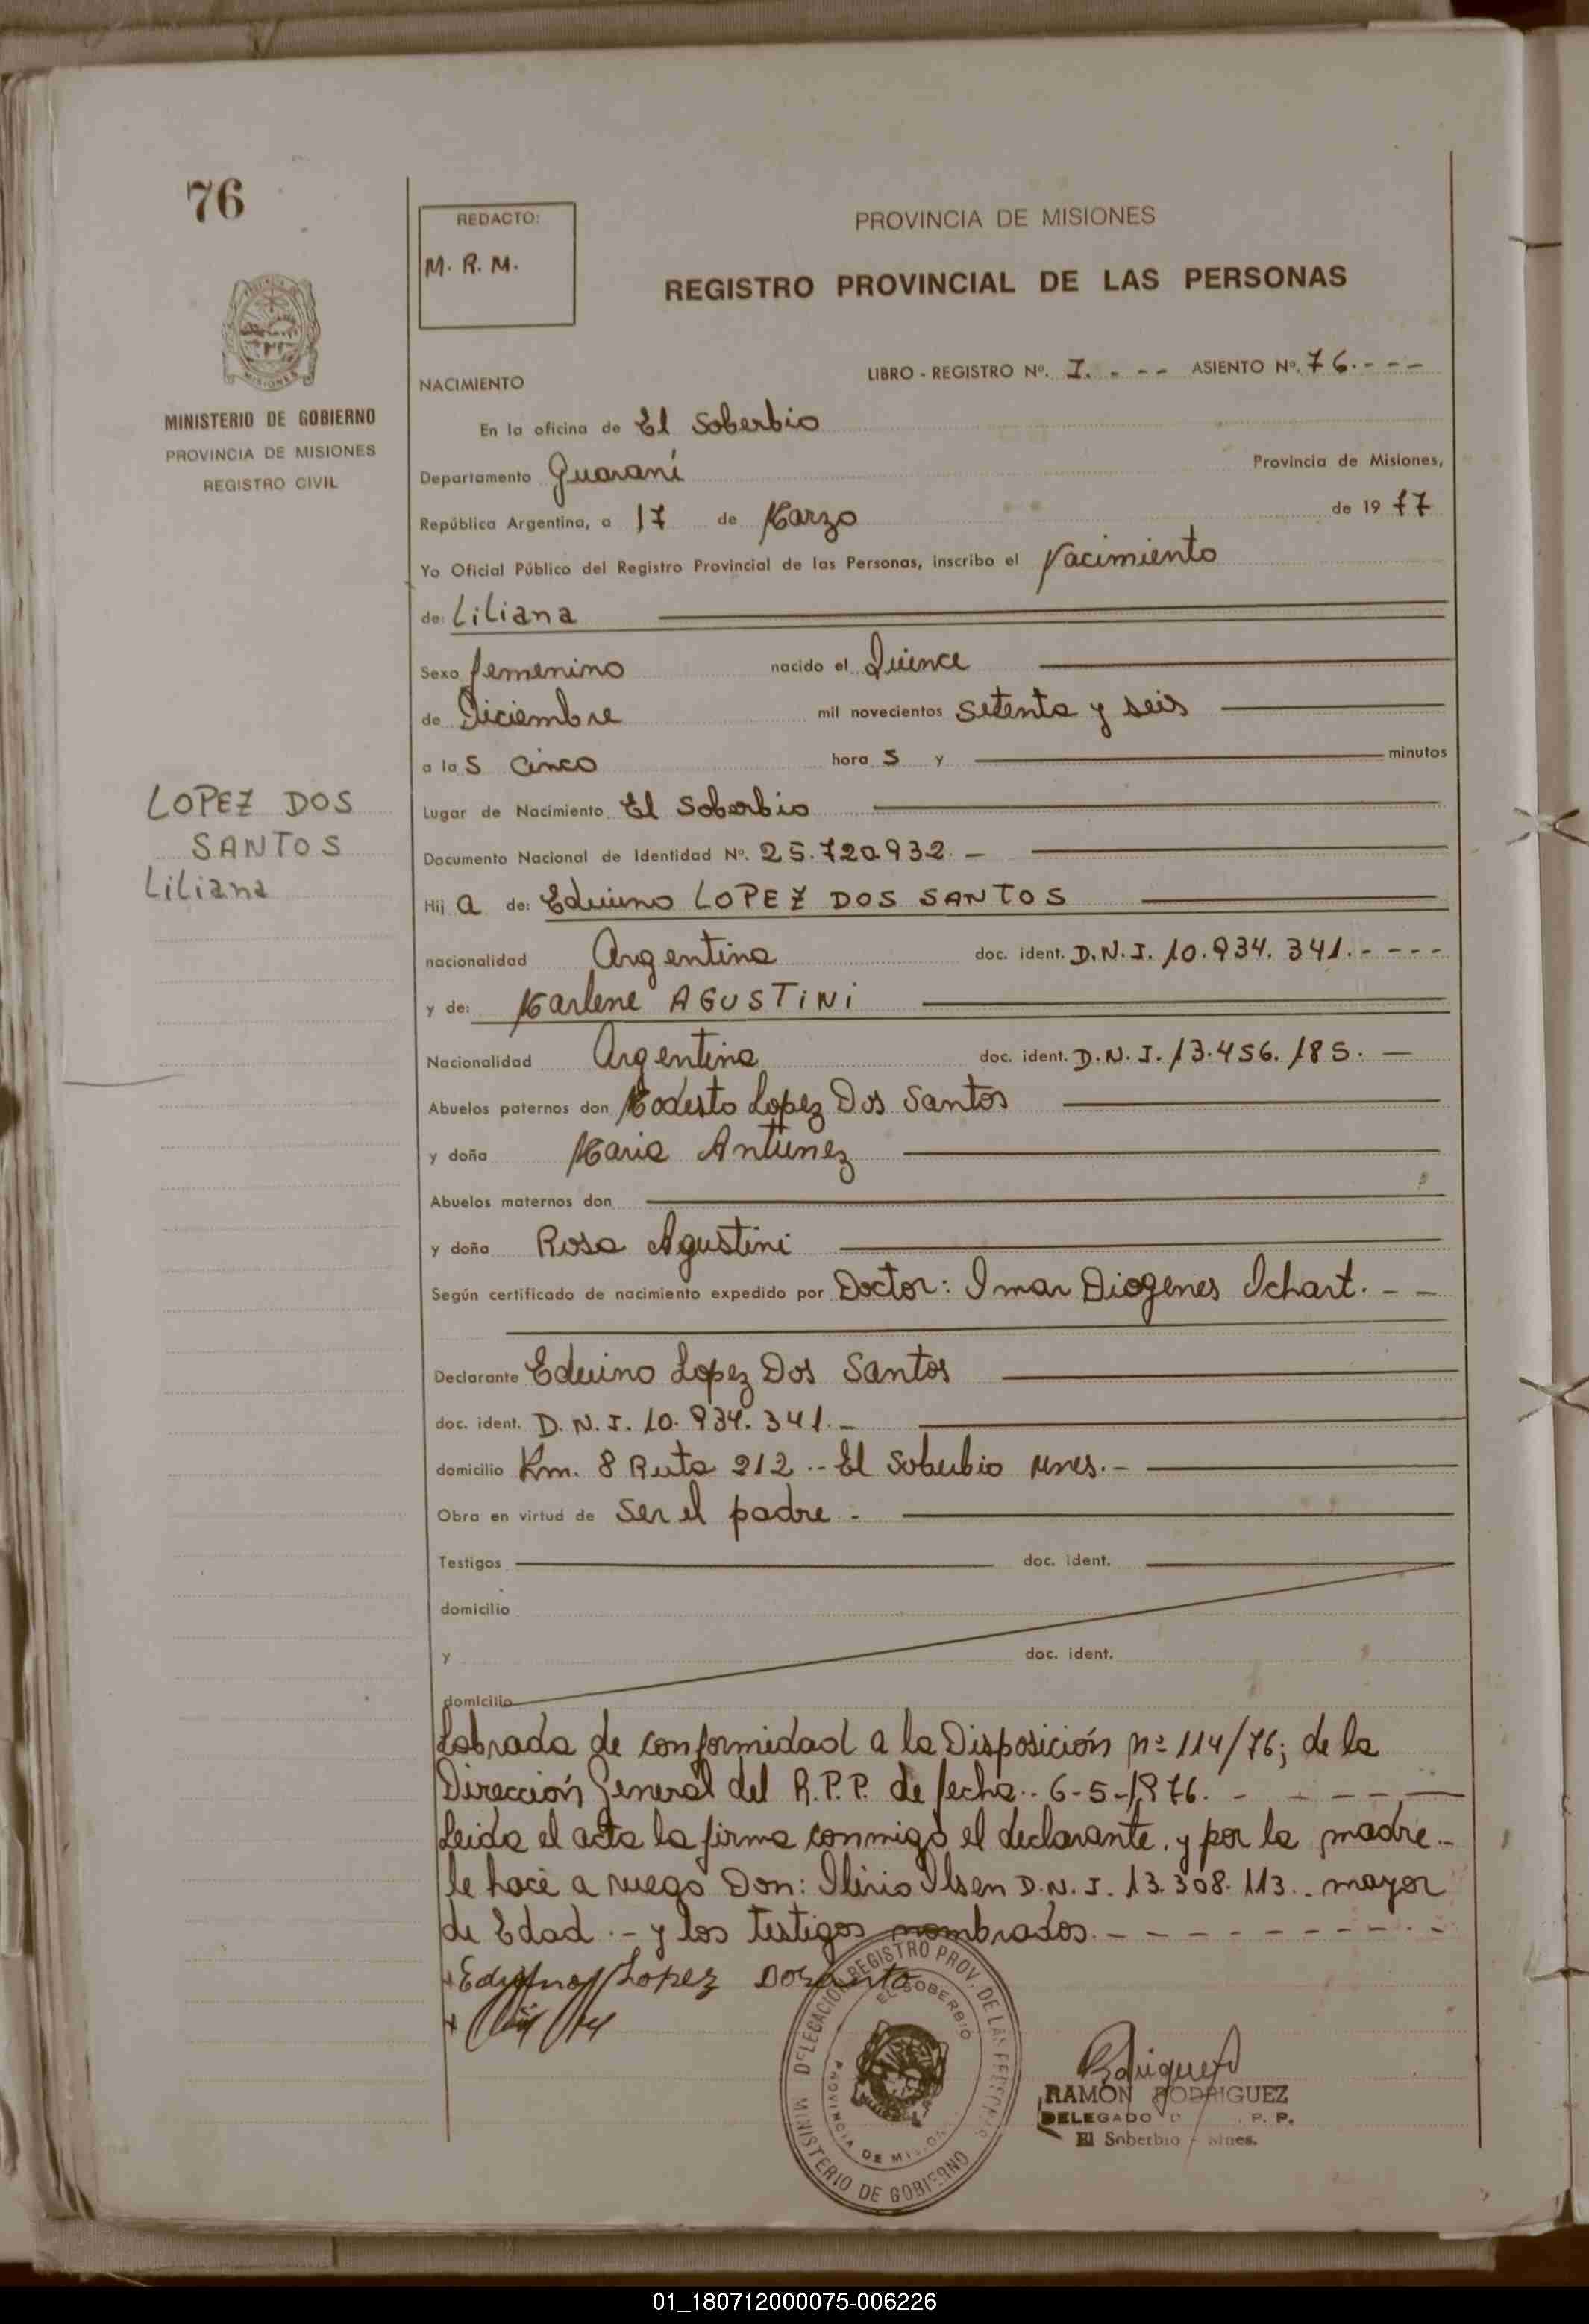 76
REDACTO:
M. R. M.
PROVINCIA DE MISIONES
REGISTRO PROVINCIAL DE LAS PERSONAS
MINISTERIO DE GOBIERNO
PROVINCIA DE MISIONES
REGISTRO CIVIL
LIBRO - REGISTRO Nº. I. - - - ASIENTO Nº. 76. - - -
NACIMIENTO
En la oficina de El Soberbio
Departamento Guaraní Provincia de Misiones,
República Argentina, a 17 de Marzo de 1977
Yo Oficial Público del Registro Provincial de las Personas, inscribo el Nacimiento
de: Liliana
Sexo femenino nacido el Quince
de Diciembre mil novecientos setenta y seis
a la s cinco hora s y minutos
Lugar de Nacimiento El Soberbio
LOPEZ DOS
SANTOS
Liliana
Documento Nacional de Identidad Nº. 25.720.932. -
Hij a de: Eduino LOPEZ DOS SANTOS
nacionalidad Argentina doc. ident. D.N.I. 10.934.341. - - - -
y de: Marlene AGUSTINI
Nacionalidad Argentina doc. ident. D.N.I. 13.456.185. -
Abuelos paternos don Modesto Lopez Dos Santos
y doña Maria Antunez
Abuelos maternos don
y doña Rosa Agustini
Según certificado de nacimiento expedido por Doctor: Imar Diogenes Ichart. - -
Declarante Eduino Lopez Dos Santos
doc. ident. D.N.I. 10.934.341. -
domicilio Km. 8 Ruta 212 .- El Soberbio Mnes. -
Obra en virtud de ser el padre -
Testigos doc. ident.
domicilio
y doc. ident.
domicilio
Labrada de conformidad a la Disposición nº 114/76; de la
Dirección General del R.P.P. de fecha .. 6-5-1976. - - - - -
Leida el acta la firma conmigo el declarante, y por la madre -
le hace a ruego Don: Ilirio Ilsen D.N.I. 13.308.113.. mayor
de Edad .- y los testigos nombrados. - - - - - - - - -
Lopez
DELEGACION REGISTRO PROV. DE LAS PERSONAS
EL SOBERBIO
PROVINCIA DE MISIONES
MINISTERIO DE GOBIERNO
Rodriguez
RAMON RODRIGUEZ
DELEGADO P. P.
El Soberbio - Mnes.
01_180712000075-006226